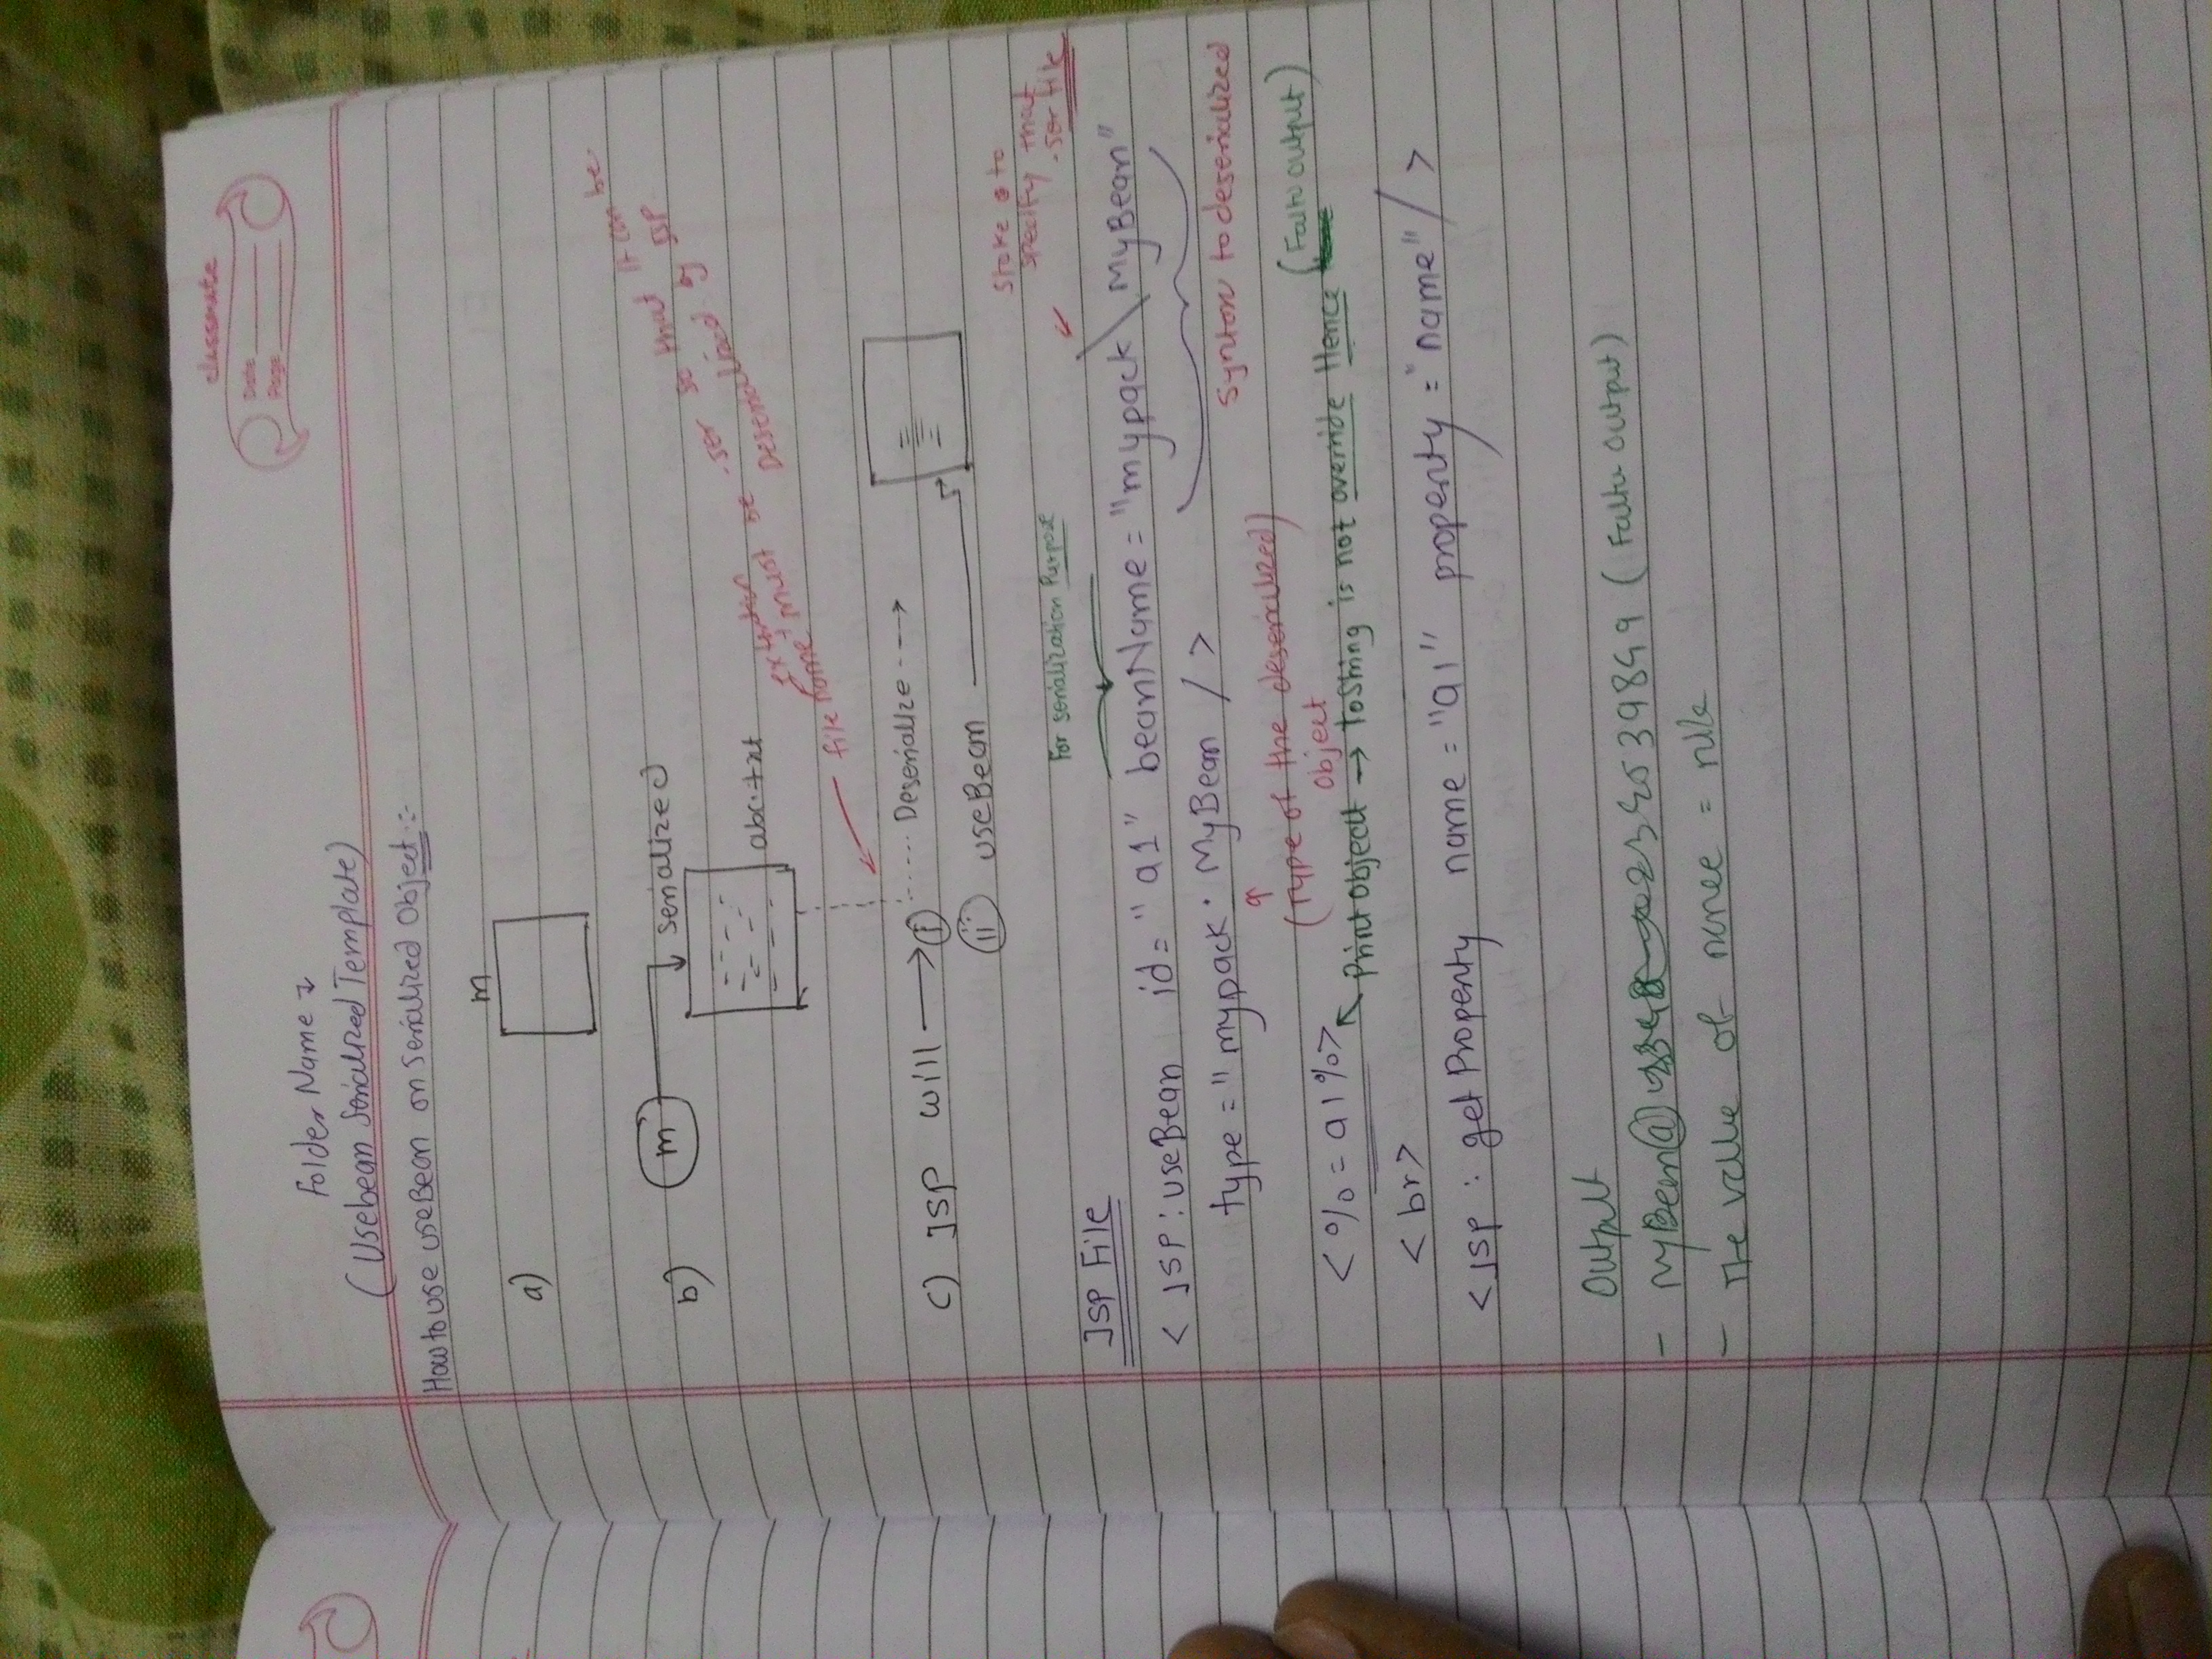 classmate
Date
Page
Folder Name
(Usebean Serialized Template)
How to use useBean on Serialized Object :-
m
a)
b) m serialized
abc.txt
extention
file name must be .ser so that it can be
Deserialized by JSP
c) JSP will → (i) Deserialize
(ii) useBean
Stoke to
specify that
.ser file
For serialization Purpose
JSP File
< JSP : useBean id = "a1" beanName = "mypack \ MyBean"
type = " mypack . MyBean / >
Syntax to deserialized
(Type of the deserialized)
object
(Faltu output)
<%= a1%> Print object → ToString is not override Hence
< br>
<JSP : get Property name = "a1" property = "name" / >
Output
- MyBean@ (Faltu output)
- The value of =